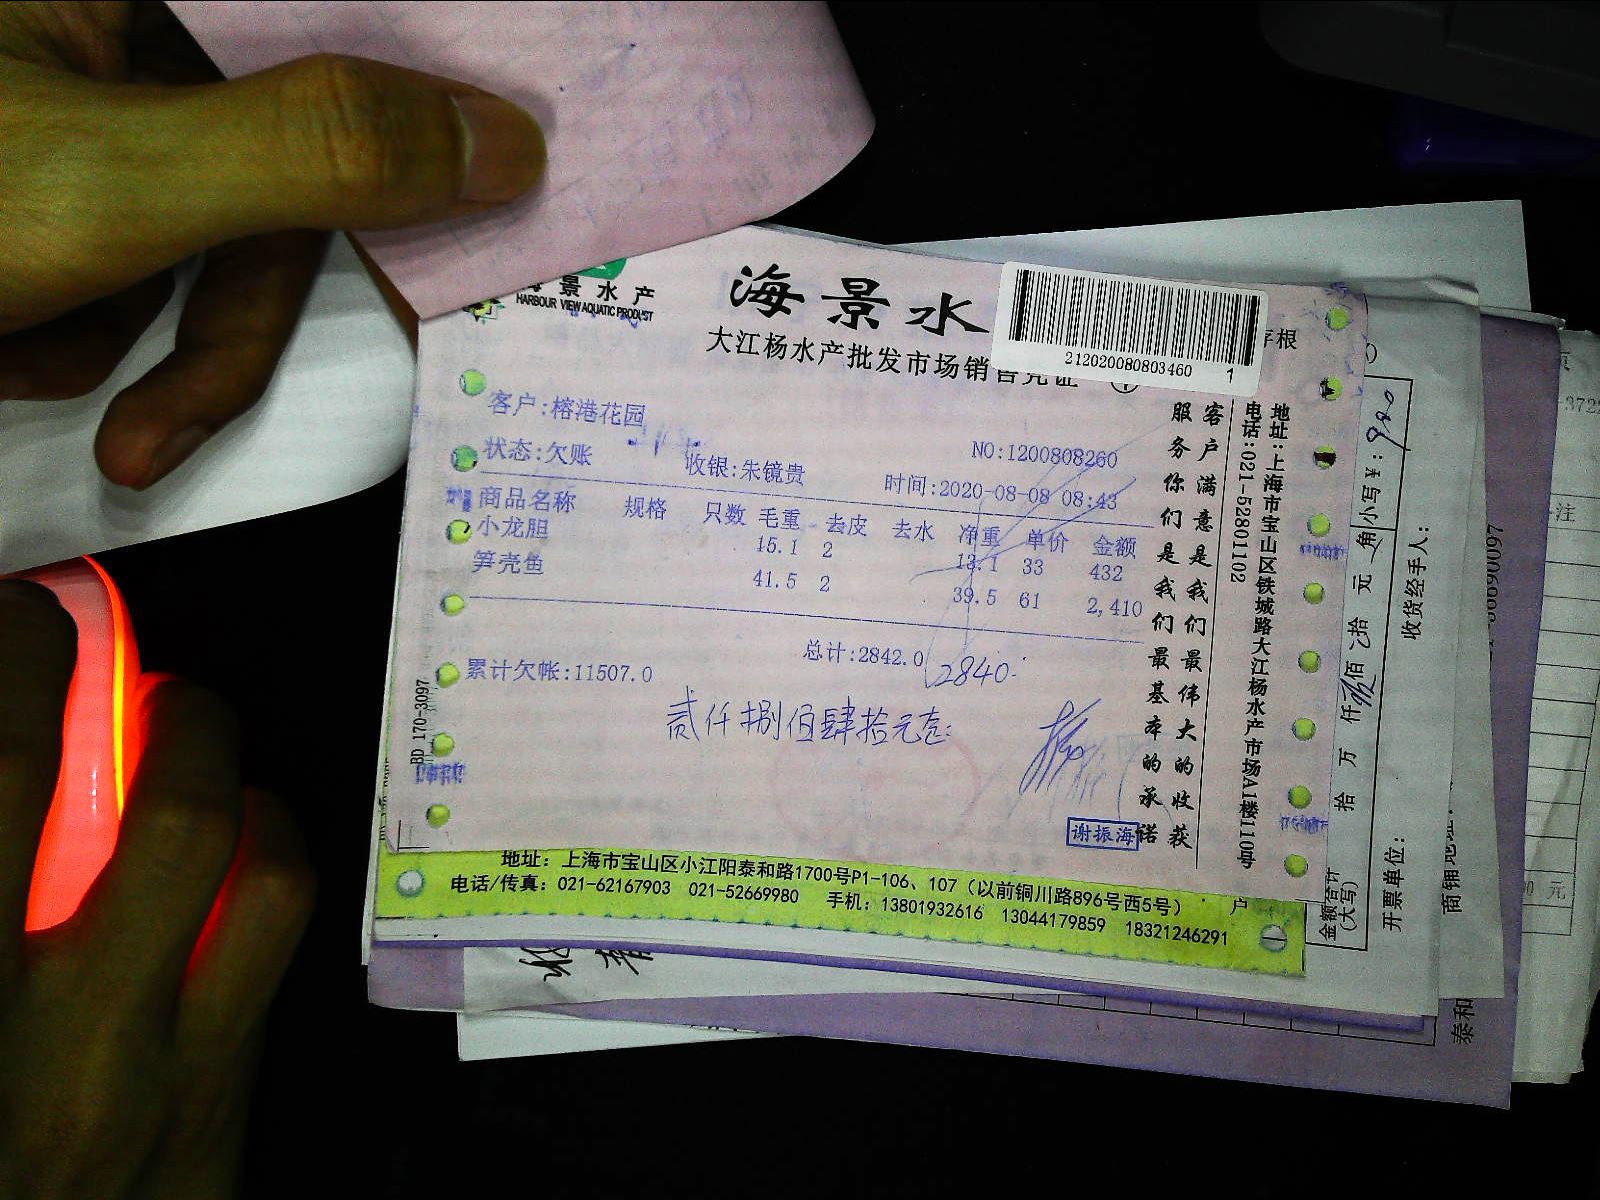 景水产
HARBOUR VIEW AQUATIC PRODUST
海景水
大江杨水产批发市场销售凭证
212020080803460 1
存根
客户:榕港花园
NO:1200808260
状态:欠账 收银:朱镜贵 时间:2020-08-08 08:43
商品名称 规格 只数 毛重 去皮 去水 净重 单价 金额
小龙胆 15.1 2 13.1 33 432
笋壳鱼 41.5 2 39.5 61 2,410
总计:2842.0 2840.
累计欠帐:11507.0
贰仟捌佰肆拾元整
谢振海
客户满意是我们最伟大的收获
服务你们是我们最基本的承诺
地址:上海市宝山区铁城路大江杨水产市场A1楼110号
电话:021-52801102
BD 170-3097
地址: 上海市宝山区小江阳泰和路1700号P1-106、107 (以前铜川路896号西5号)
电话/传真: 021-62167903 021-52669980 手机: 13801932616 13044179859 18321246291
金额合计(大写) 拾 万 仟 佰 拾 元 角 小写¥: 980
开票单位:
收货经手人:
商铺地址:
泰和